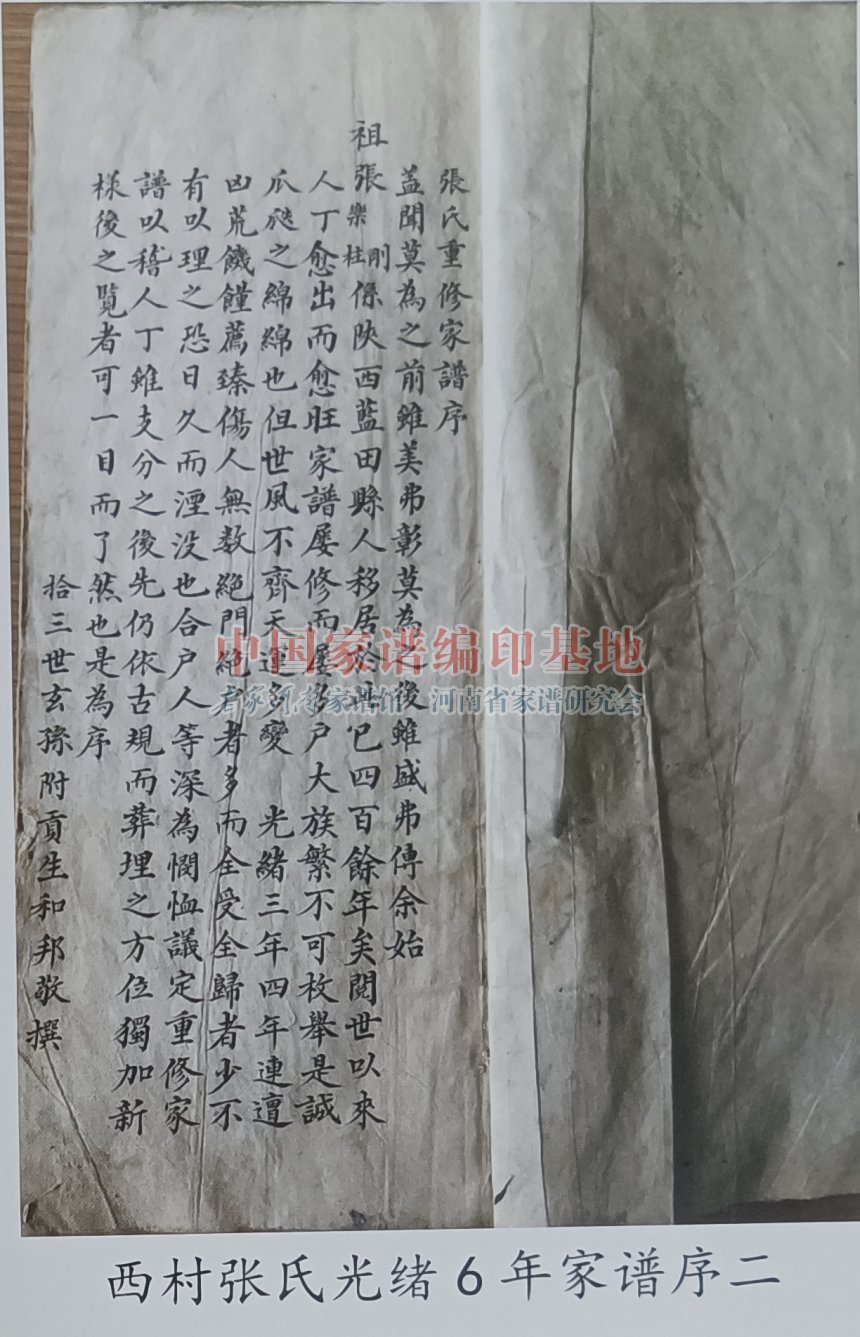 張氏重修家譜序
蓋聞莫為之前雖美弗彰莫為之後雖盛弗傳余始
祖張樂剛柱係陝西藍田縣人移居於 已四百餘年矣閱世以來
人丁愈出而愈旺家譜屡修而屡多户大族繁不可枚舉是誠
瓜瓞之綿綿也但世風不齊天運多變 光緒三年四年連遭
凶荒饑饉薦臻傷人無数絕門絕户者多而全受全歸者少不
有以理之恐日久而湮没也合户人等深為憫恤議定重修家
譜以稽人丁雖支分之後先仍依古規而葬理之方位獨加新
樣後之覧者可一目而了然也是為序
拾三世玄孫附貢生和邦敬撰
中国家谱编印基地
家谱馆 河南省家谱研究会
西村张氏光绪6年家谱序二